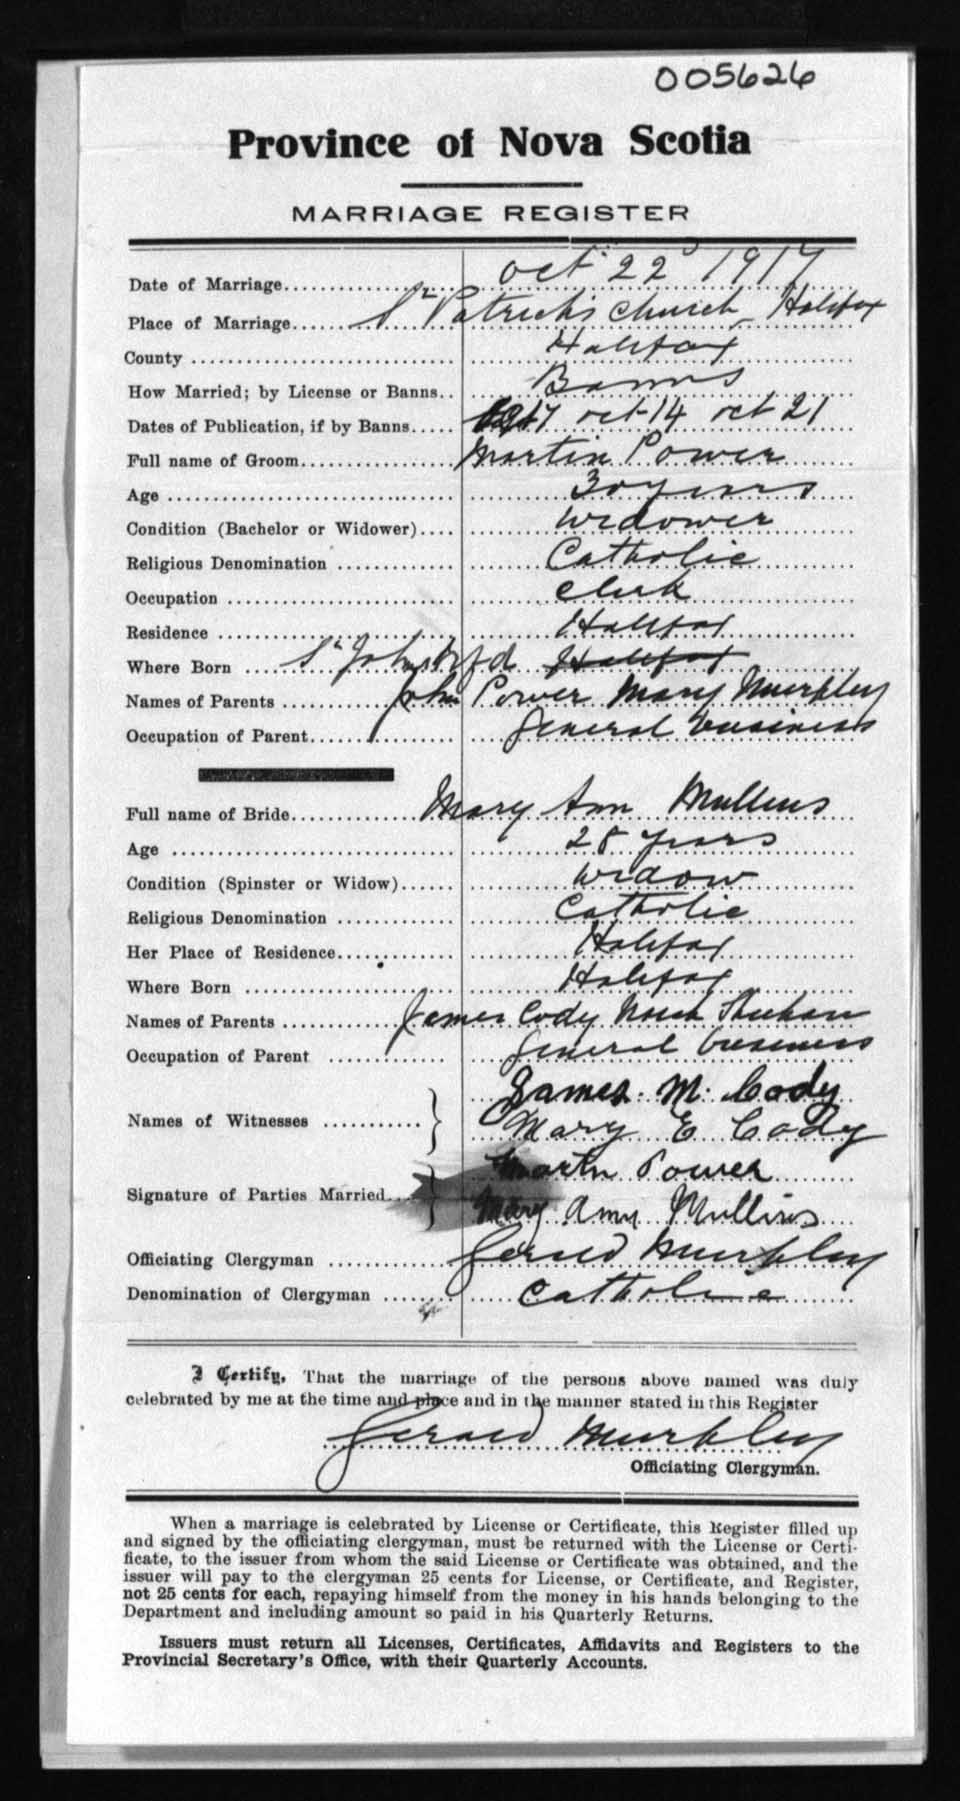 005626
Province of Nova Scotia
MARRIAGE REGISTER
Date of Marriage oct 22 1917
Place of Marriage St Patrick's Church Halifax
County Halifax
How Married; by License or Banns Banns
Dates of Publication, if by Banns oct 14 oct 21
Full name of Groom Martin Power
Age 30 years
Condition (Bachelor or Widower) widower
Religious Denomination Catholic
Occupation clerk
Residence Halifax
Where Born St John's Nfd Halifax
Names of Parents John Power Mary Murphy
Occupation of Parent General business
Full name of Bride Mary Ann Mullins
Age 28 years
Condition (Spinster or Widow) widow
Religious Denomination Catholic
Her Place of Residence Halifax
Where Born Halifax
Names of Parents James Cody Sheehan
Occupation of Parent General business
Names of Witnesses James M. Cody
Mary E Cody
Signature of Parties Married Martin Power
Mary Ann Mullins
Officiating Clergyman Gerald Murphy
Denomination of Clergyman Catholic
I Certify, That the marriage of the persons above named was duly
celebrated by me at the time and place and in the manner stated in this Register
Gerald Murphy
Officiating Clergyman.
When a marriage is celebrated by License or Certificate, this Register filled up
and signed by the officiating clergyman, must be returned with the License or Certi-
ficate, to the issuer from whom the said License or Certificate was obtained, and the
issuer will pay to the clergyman 25 cents for License, or Certificate, and Register,
not 25 cents for each, repaying himself from the money in his hands belonging to the
Department and including amount so paid in his Quarterly Returns.
Issuers must return all Licenses, Certificates, Affidavits and Registers to the
Provincial Secretary's Office, with their Quarterly Accounts.